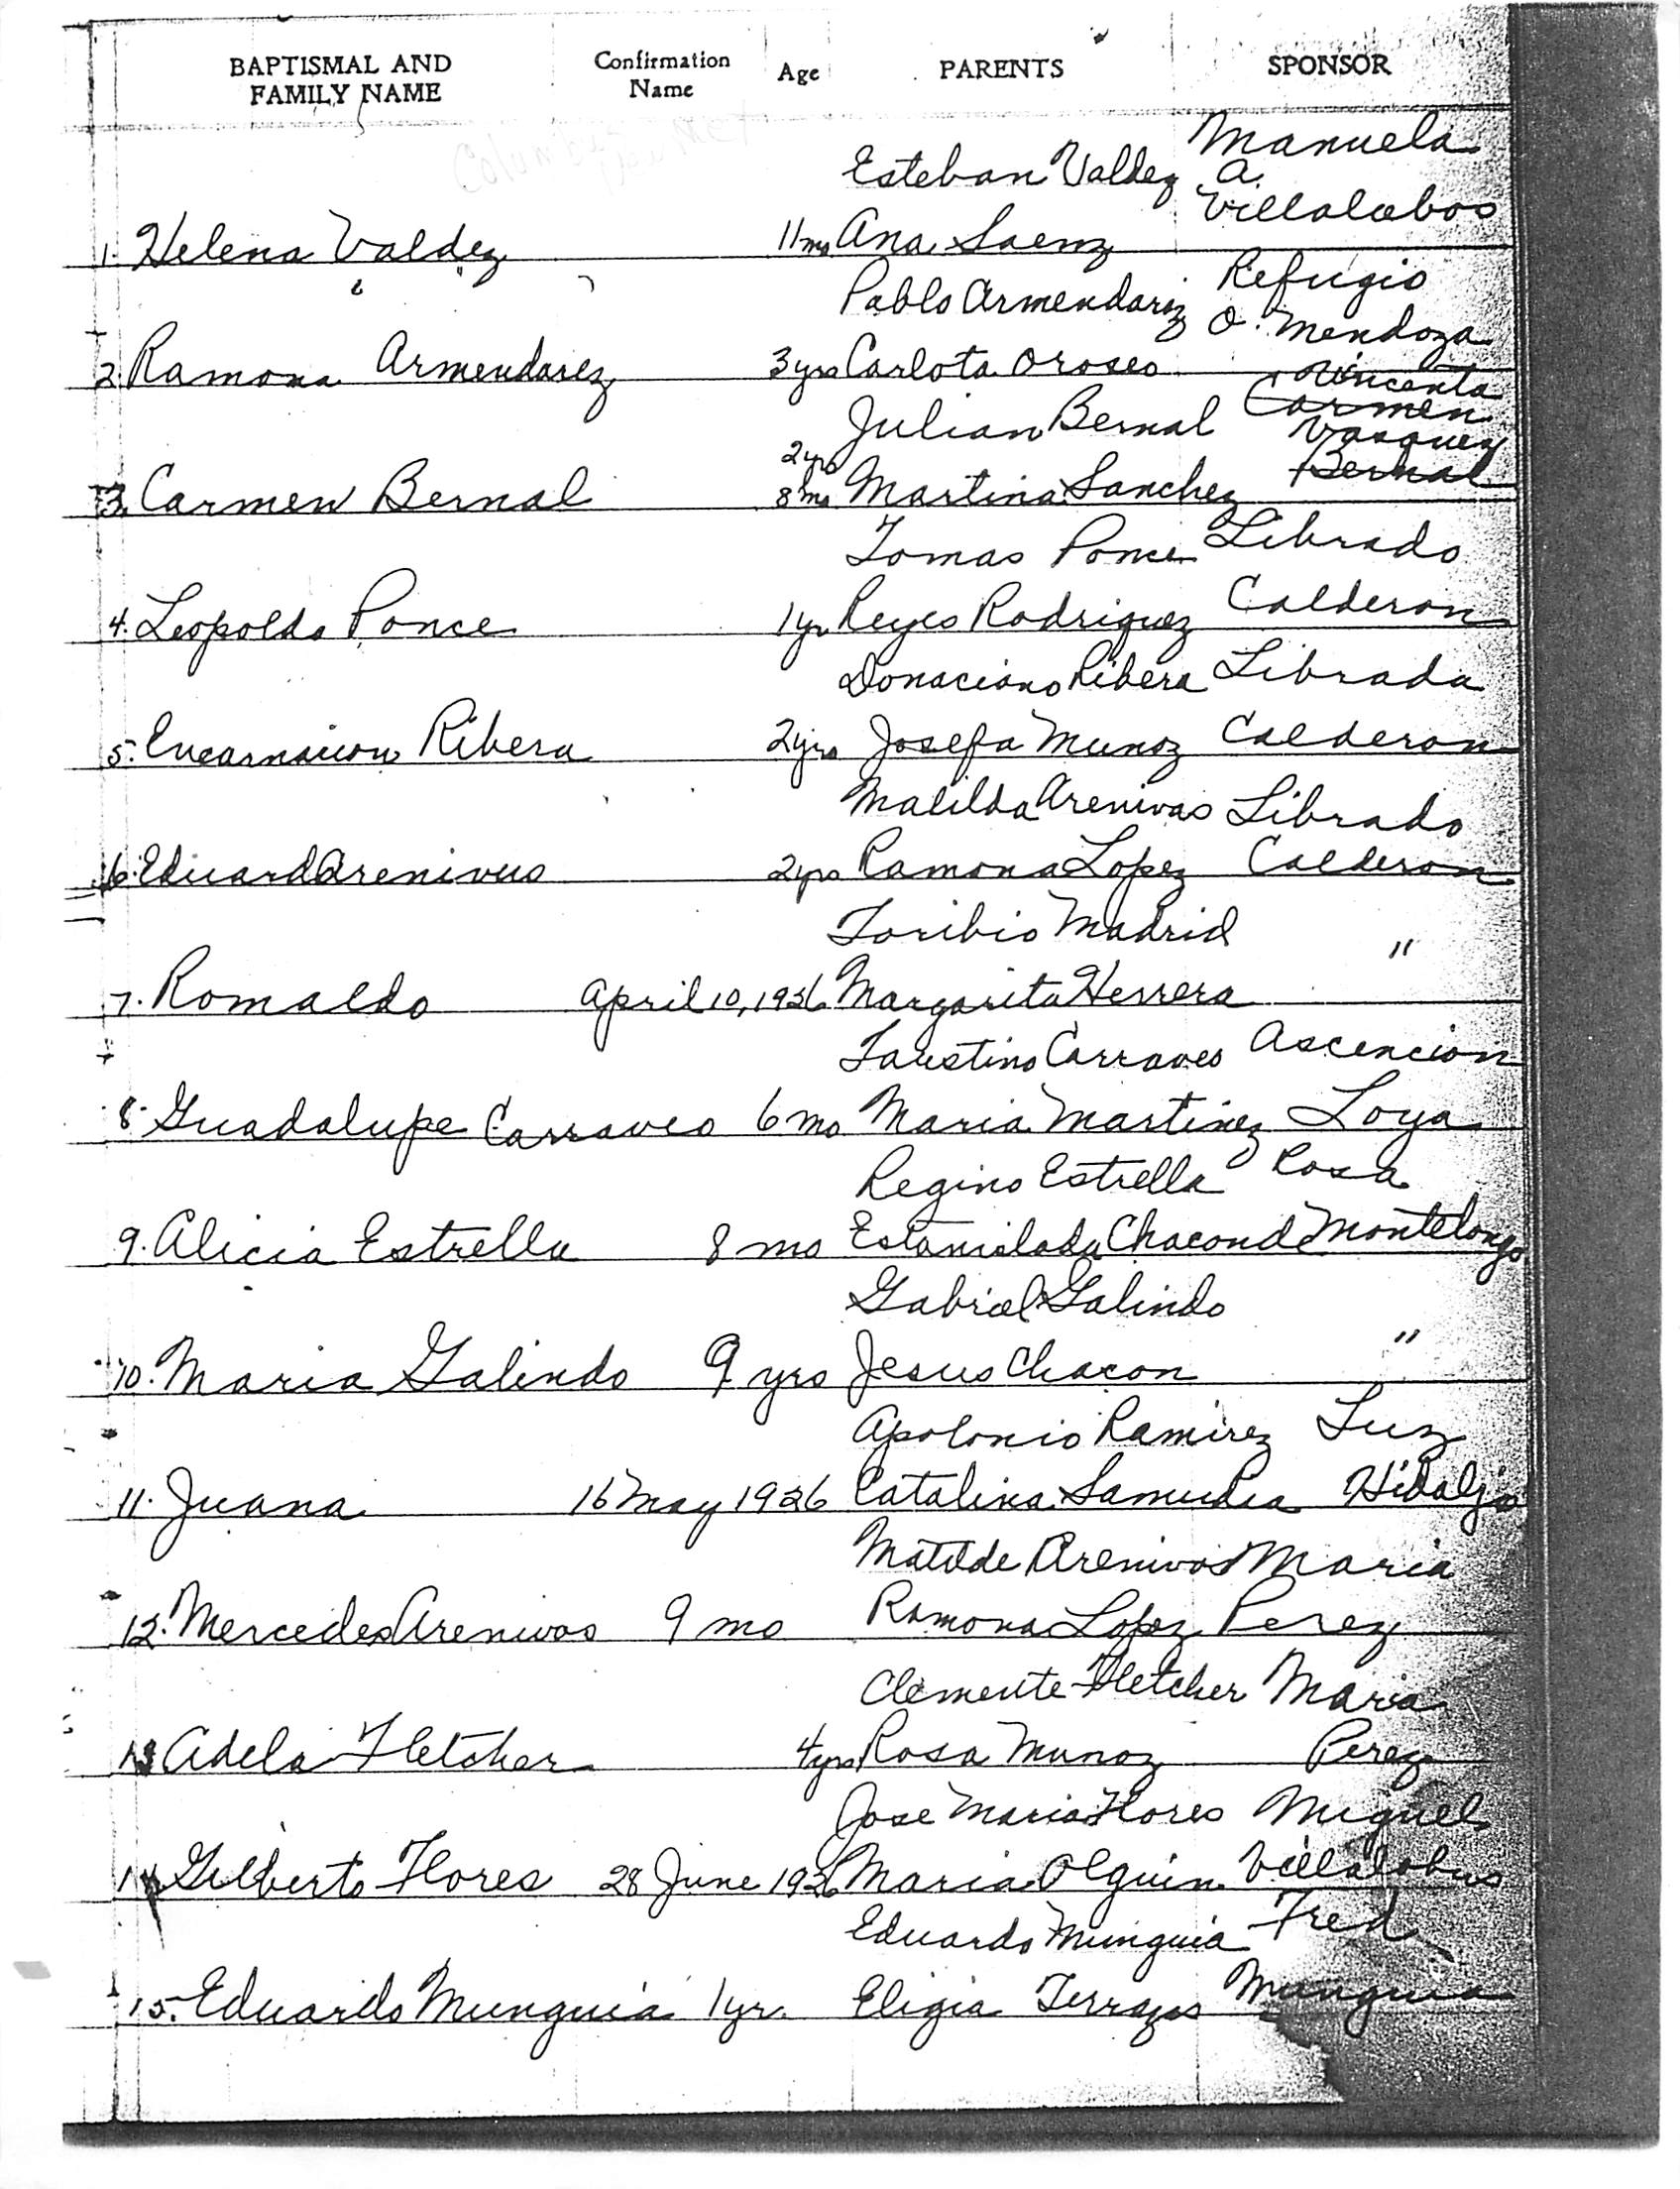 BAPTISMAL AND FAMILY NAME Confirmation Name Age PARENTS SPONSOR
Esteban Valdez Manuela A. Villalobos
1. Helena Valdez 11mo Ana Saenz
Pablo Armendariz Refugio O. Mendoza
2. Ramona Armendarez 3 yrs Carlota Orosco
Julian Bernal Vincenta Carmen Vasquez Bernal
3. Carmen Bernal 2 yrs 8 mo Martina Sanchez
Tomas Ponce Librado
4. Leopoldo Ponce 1 yr Reyes Rodriguez Calderon
Donaciano Ribera Librada
5. Encarnacion Ribera 2 yrs Josefa Munoz Calderon
Matilda Arenivas Librado
6. Eduard Arenivus 2 yrs Ramona Lopez Calderon
Toribio Madrid "
7. Romaldo April 10, 1926 Margarita Herrera
Faustino Carraveo Ascencion
8. Guadalupe Carraveo 6 mo Maria Martinez Loya
Regino Estrella Rosa
9. Alicia Estrella 8 mo Estanislada Chacon de Montelongo
Gabriel Galindo "
10. Maria Galindo 9 yrs Jesus Chacon
Apolonio Ramirez Luz
11. Juana 16 May 1926 Catalina Samudia Hidalgo
Matilde Arenivas Maria
12. Mercedes Arenivas 9 mo Ramona Lopez Perez
Clemente Fletcher Maria
13 Adela Fletcher 4 yrs Rosa Munoz Perez
Jose Maria Flores Miguel
14 Gilberto Flores 28 June 1926 Maria Olguin Villalobos
Eduardo Munguia Fred
15. Eduardo Munguia 1 yr. Eligia Terrazas Munguia